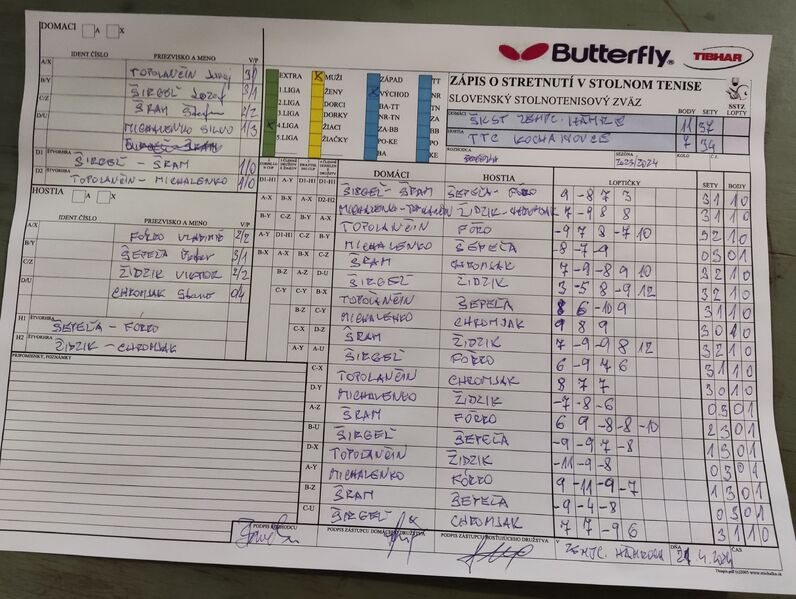 DOMACI A X
Butterfly
TIBHAR
IDENT.ČÍSLO PRIEZVISKO A MENO V/P
A/X TOPOLANČIN Juraj 3/1
B/Y ŠIRGEĽ Jozef 3/1
C/Z ŠRAM Štefan 2/2
D/U MICHALENKO SILVO 1/3
D1 ŠTVORHRA ŠIRGEĽ - ŠRAM 1/0
D2 ŠTVORHRA TOPOLANČIN - MICHALENKO 1/0
EXTRA MUŽI ZÁPAD TT
1.LIGA ŽENY VÝCHOD NR
2.LIGA DORCI BA-TT TN
3.LIGA DORKY NR-TN ZA
4.LIGA ŽIACI ZA-BB BB
5.LIGA ŽIAČKY PO-KE PO
BA KE
ZÁPIS O STRETNUTÍ V STOLNOM TENISE
SLOVENSKÝ STOLNOTENISOVÝ ZVÄZ
SSTZ
BODY SETY LOPTY
DOMÁCI ŠKST ZEMPL. HÁMRE 11 37
HOSTIA TTC KOCHANOVCE 7 34
ROZHODCA SEZÓNA 2023/2024 KOLO Č.
HOSTIA A X
IDENT.ČÍSLO PRIEZVISKO A MENO V/P
A/X FORRO VLADIMÍR 2/2
B/Y ŠEPEĽA Peter 3/1
C/Z ŽIDZIK VIKTOR 2/2
D/U CHROMJAK Stano 0/4
H1 ŠTVORHRA ŠEPEĽA - FORRO
H2 ŠTVORHRA ŽIDZIK - CHROMJAK
PRIPOMIENKY, POZNÁMKY
DOMÁCI HOSTIA LOPTIČKY SETY BODY
D1-H1 A-Y D1-H1 D1-H1 ŠIRGEĽ - ŠRAM ŠEPEĽA - FORRO 9 -8 7 3 3 1 1 0
MICHALENKO - TOPOLANČIN ŽIDZIK - CHROMJAK 7 -9 8 8 3 1 1 0
TOPOLANČIN FORRO -9 7 8 -7 10 3 2 1 0
MICHALENKO ŠEPEĽA -8 -7 -9 0 3 0 1
ŠRAM CHROMJAK 7 -9 -8 9 10 3 2 1 0
ŠIRGEĽ ŽIDZIK 3 -5 8 -9 12 3 2 1 0
TOPOLANČIN ŠEPEĽA 8 6 -10 9 3 1 1 0
MICHALENKO CHROMJAK 9 8 9 3 0 1 0
ŠRAM ŽIDZIK 7 -9 -9 8 12 3 2 1 0
C-X ŠIRGEĽ FORRO 6 -9 4 6 3 1 1 0
D-Y TOPOLANČIN CHROMJAK 8 7 7 3 0 1 0
A-Z MICHALENKO ŽIDZIK -7 -8 -6 0 3 0 1
B-U ŠRAM FORRO 6 9 -8 -8 -10 2 3 0 1
D-X ŠIRGEĽ ŠEPEĽA -9 -9 7 -8 1 3 0 1
A-Y TOPOLANČIN ŽIDZIK -11 -9 -8 0 3 0 1
B-Z MICHALENKO FORRO 9 -11 -9 -7 1 3 0 1
C-U ŠRAM ŠEPEĽA -9 -4 -8 0 3 0 1
ŠIRGEĽ CHROMJAK 7 7 -9 6 3 1 1 0
PODPIS ROZHODCU PODPIS ZÁSTUPCU DOMÁCEHO DRUŽSTVA PODPIS ZÁSTUPCU HOSŤUJÚCEHO DRUŽSTVA V DŇA ČAS